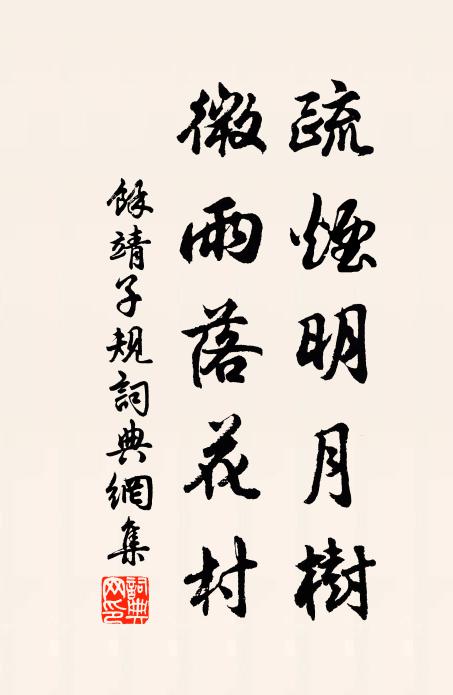 疏煙明月樹
微雨落花村
餘靖子規詞典網集
詞典網印